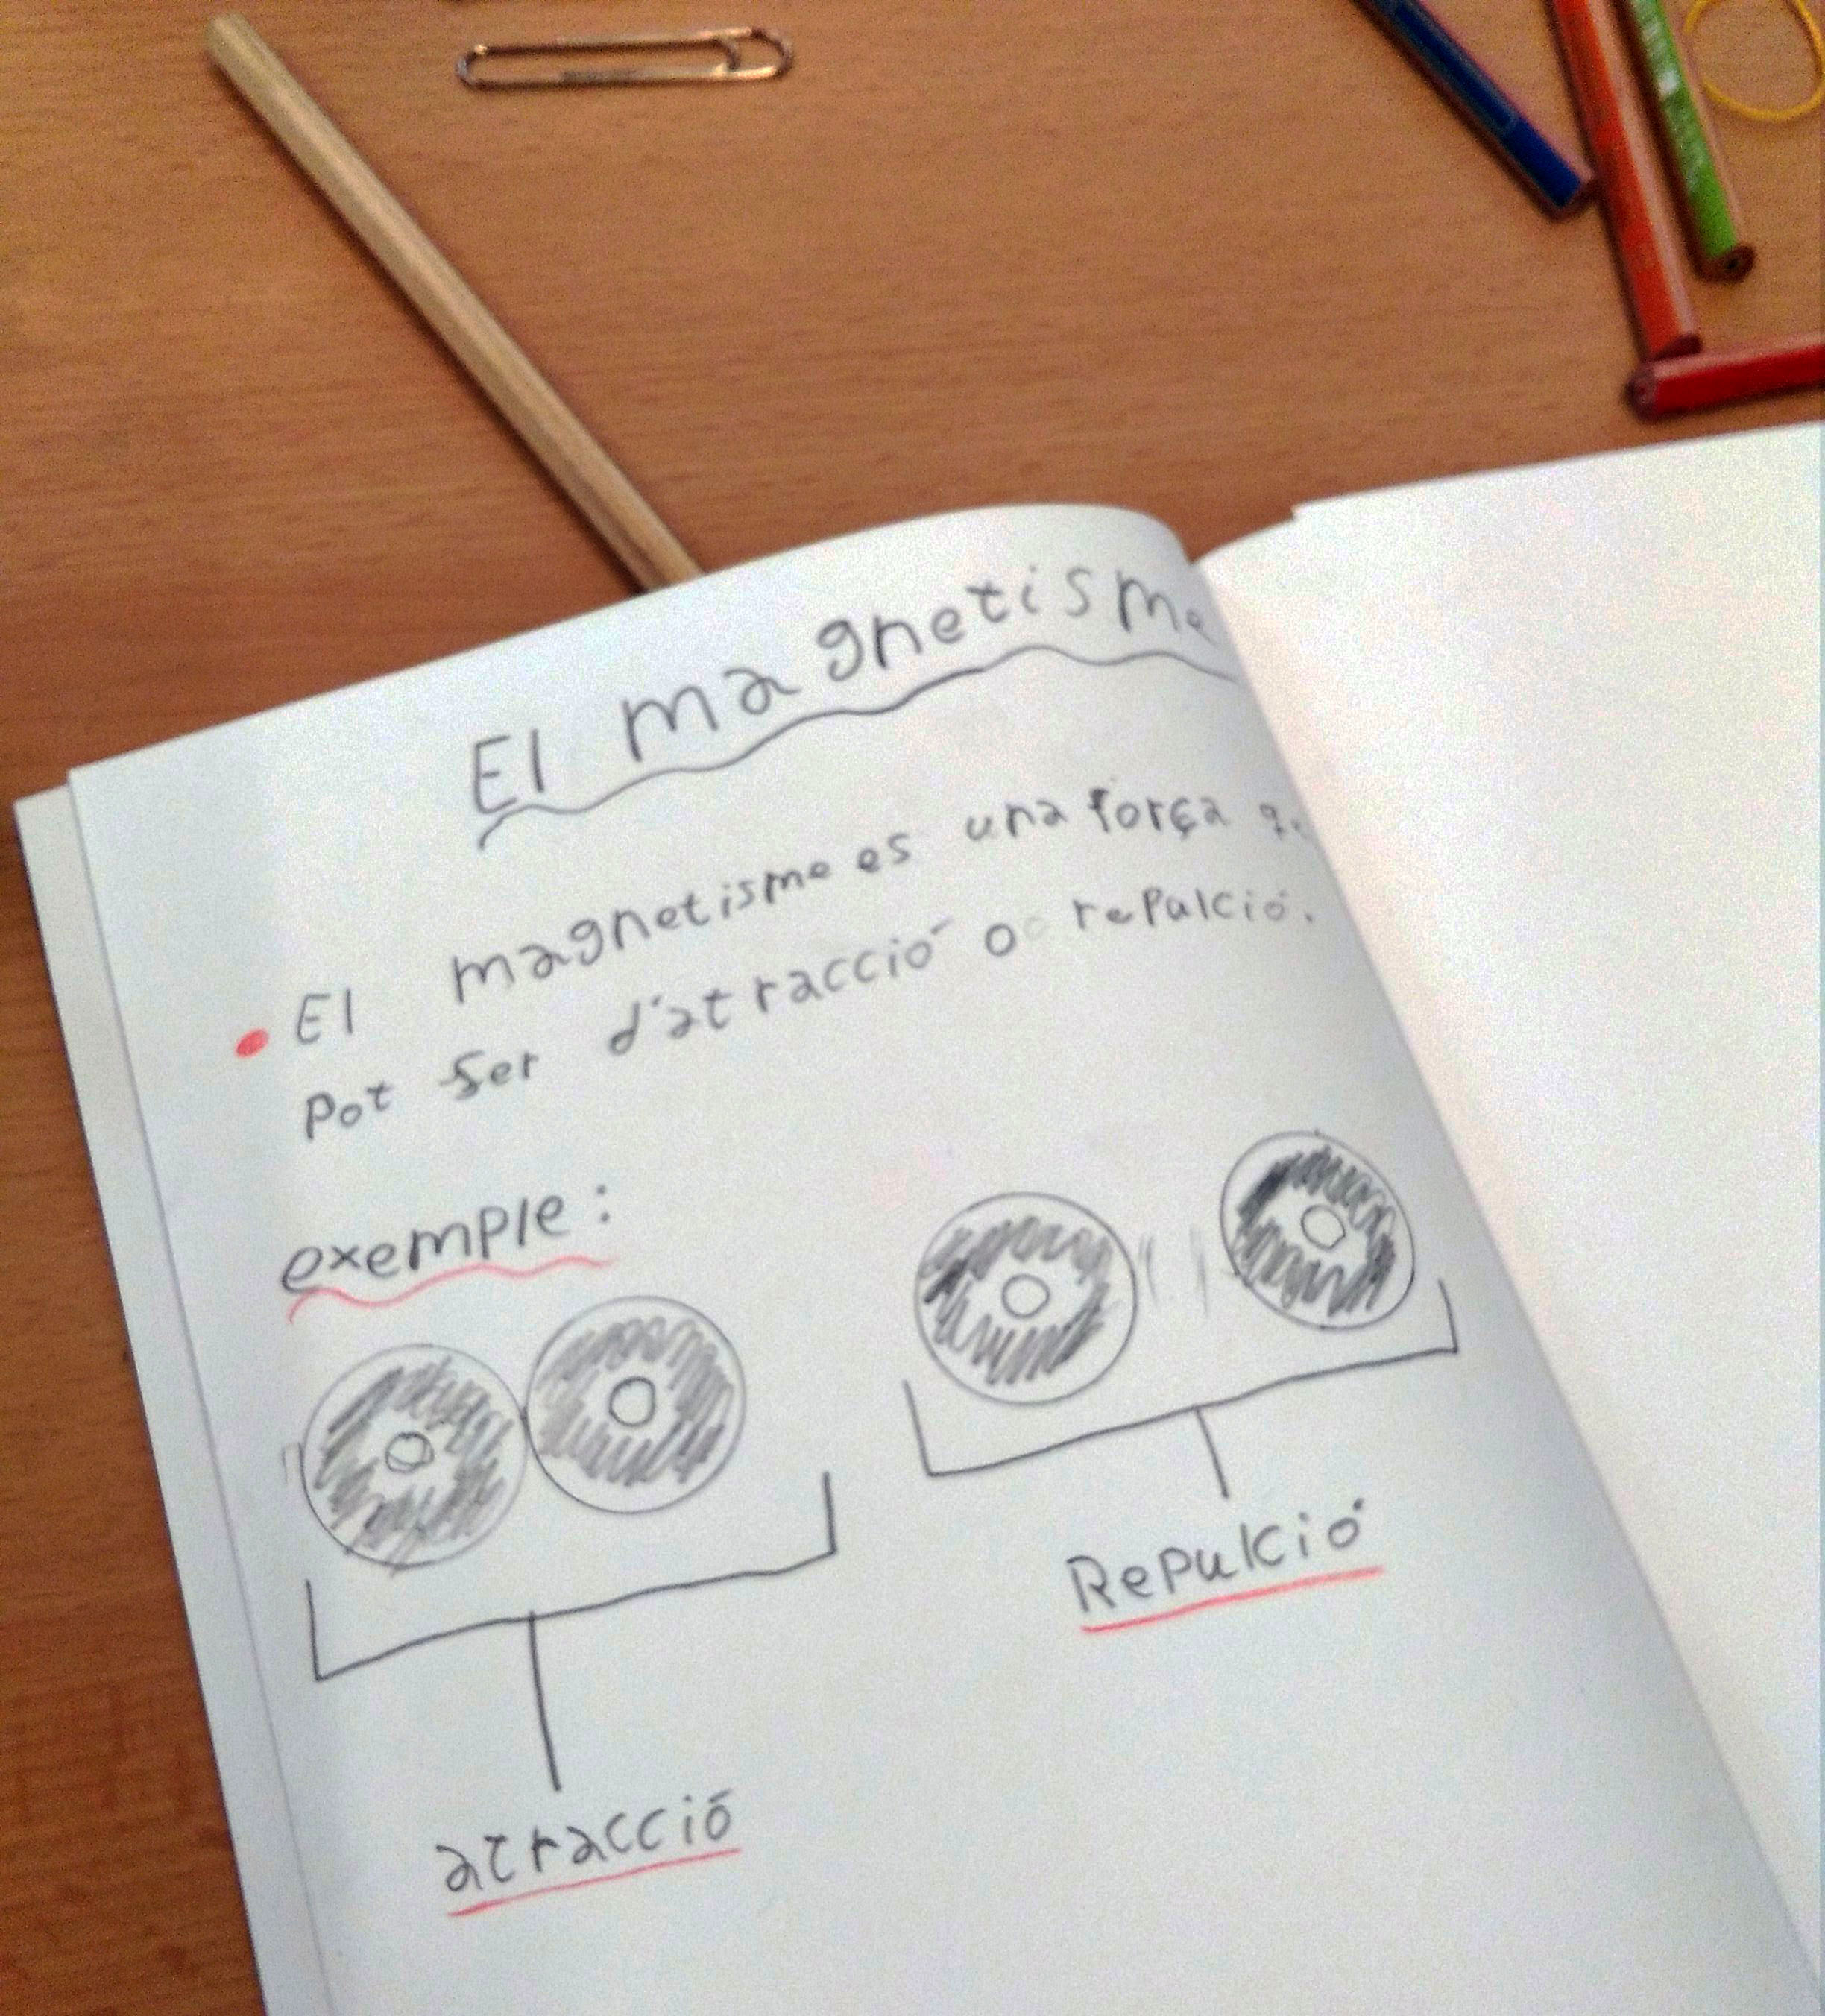 El magnetisme
El magnetisme es una força
pot ser d'atracció o repulció.
exemple:
Repulció
atracció